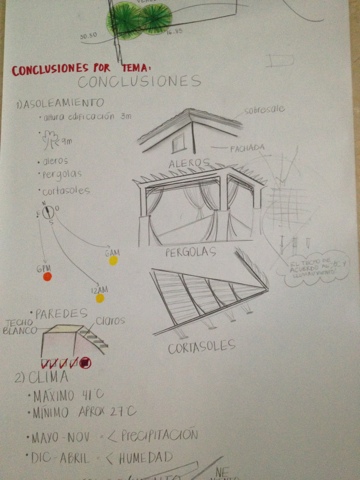 20.30
16.25
CONCLUSIONES POR TEMA:
CONCLUSIONES
1) ASOLEAMIENTO
• altura edificación 3m
9m
• aleros
• pergolas
• cortasoles
sobresale
FACHADA
ALEROS
N
O
6PM
9AM
12AM
PERGOLAS
EL TECHO DE
ACUERDO
• PAREDES
TECHO
BLANCO
claros
CORTASOLES
2) CLIMA
• MAXIMO 41°C
• MÍNIMO APROX 27°C
• MAYO-NOV - < PRECIPITACIÓN
• DIC-ABRIL - < HUMEDAD
NE